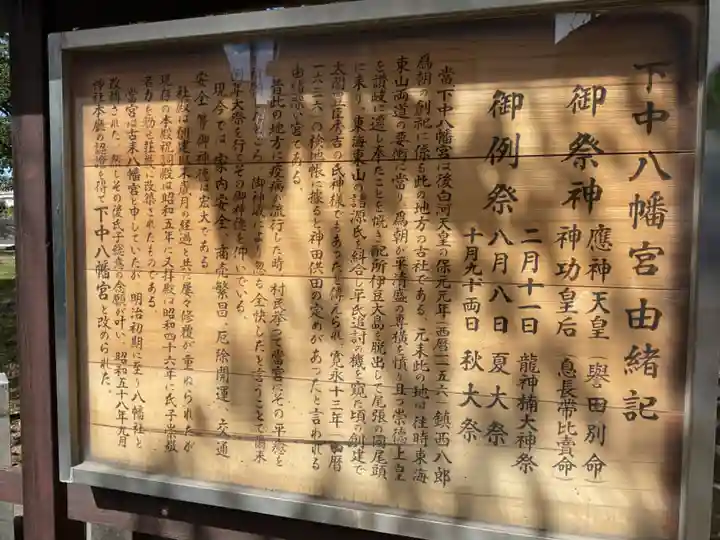 下中八幡宮由緒記
御祭神 應神天皇(譽田別命)
神功皇后(息長帯比賣命)
御例祭 二月十一日 龍神楠大神祭
八月八日 夏大祭
十月九十両日 秋大祭
當下中八幡宮は後白河天皇の保元元年(西暦一一五六)鎮西八郎
為朝の創祀に係る此の地方の古社である。元来此の地は往時東海
東山両道の要衝に當り、為朝が平清盛の専横を憤り且つ崇徳上皇
を讃岐に遷し奉たことを慨き配所伊豆大島を脱出して尾張の國尾頭
に来り、東海東山の諸源氏を糾合し平氏追討の機を窺た頃の創建で
太閤豊臣秀吉の氏神様でもあったと傳えられ、寛永十三年(西暦
一六三六)の検地帳に據ると神田供田の定めがあったと言われる
由緒深い宮である。
昔此の地方に疫病が流行した時、村民挙って當宮にその平癒を
ころ、御神威により忽ち全快したと言うことで爾来
例年大祭を行てその御神徳を仰いでいる。
現今では、家内安全、商売繁昌、厄除開運、交通
安全等御神徳は宏大である。
社殿は創建以来歳月の経過と共に屡々修覆が重ねられたが
現在の本殿祝詞殿は昭和五年に又拝殿は昭和四十六年に氏子崇敬
者力を協せ荘厳に改築されたものである。
當宮は古来八幡宮と申していたが、明治初期に至り八幡社と
改称された。然しその後氏子総意の念願が叶い、昭和五十八年九月
神社本廳の認證を得て下中八幡宮と改められた。